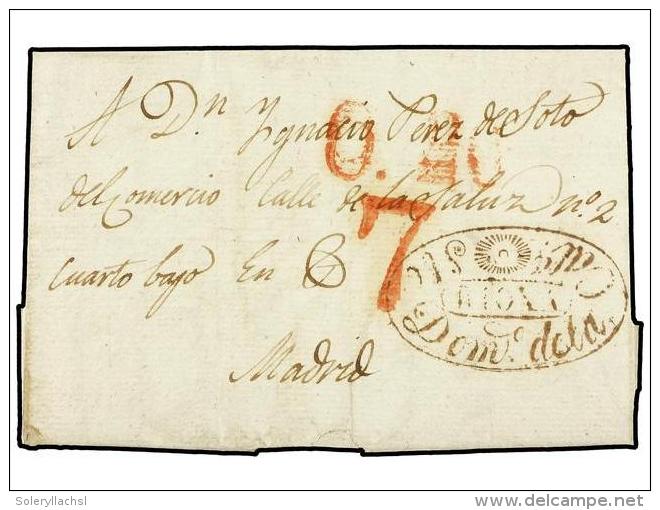 A Dn Ygnacio Perez de Soto
6. 10
del Comercio Calle de la Saluz nº 2
7
cuarto bajo En
RIOXA
Domº dela
Madrid
Soleryllachsl
delcampe.net